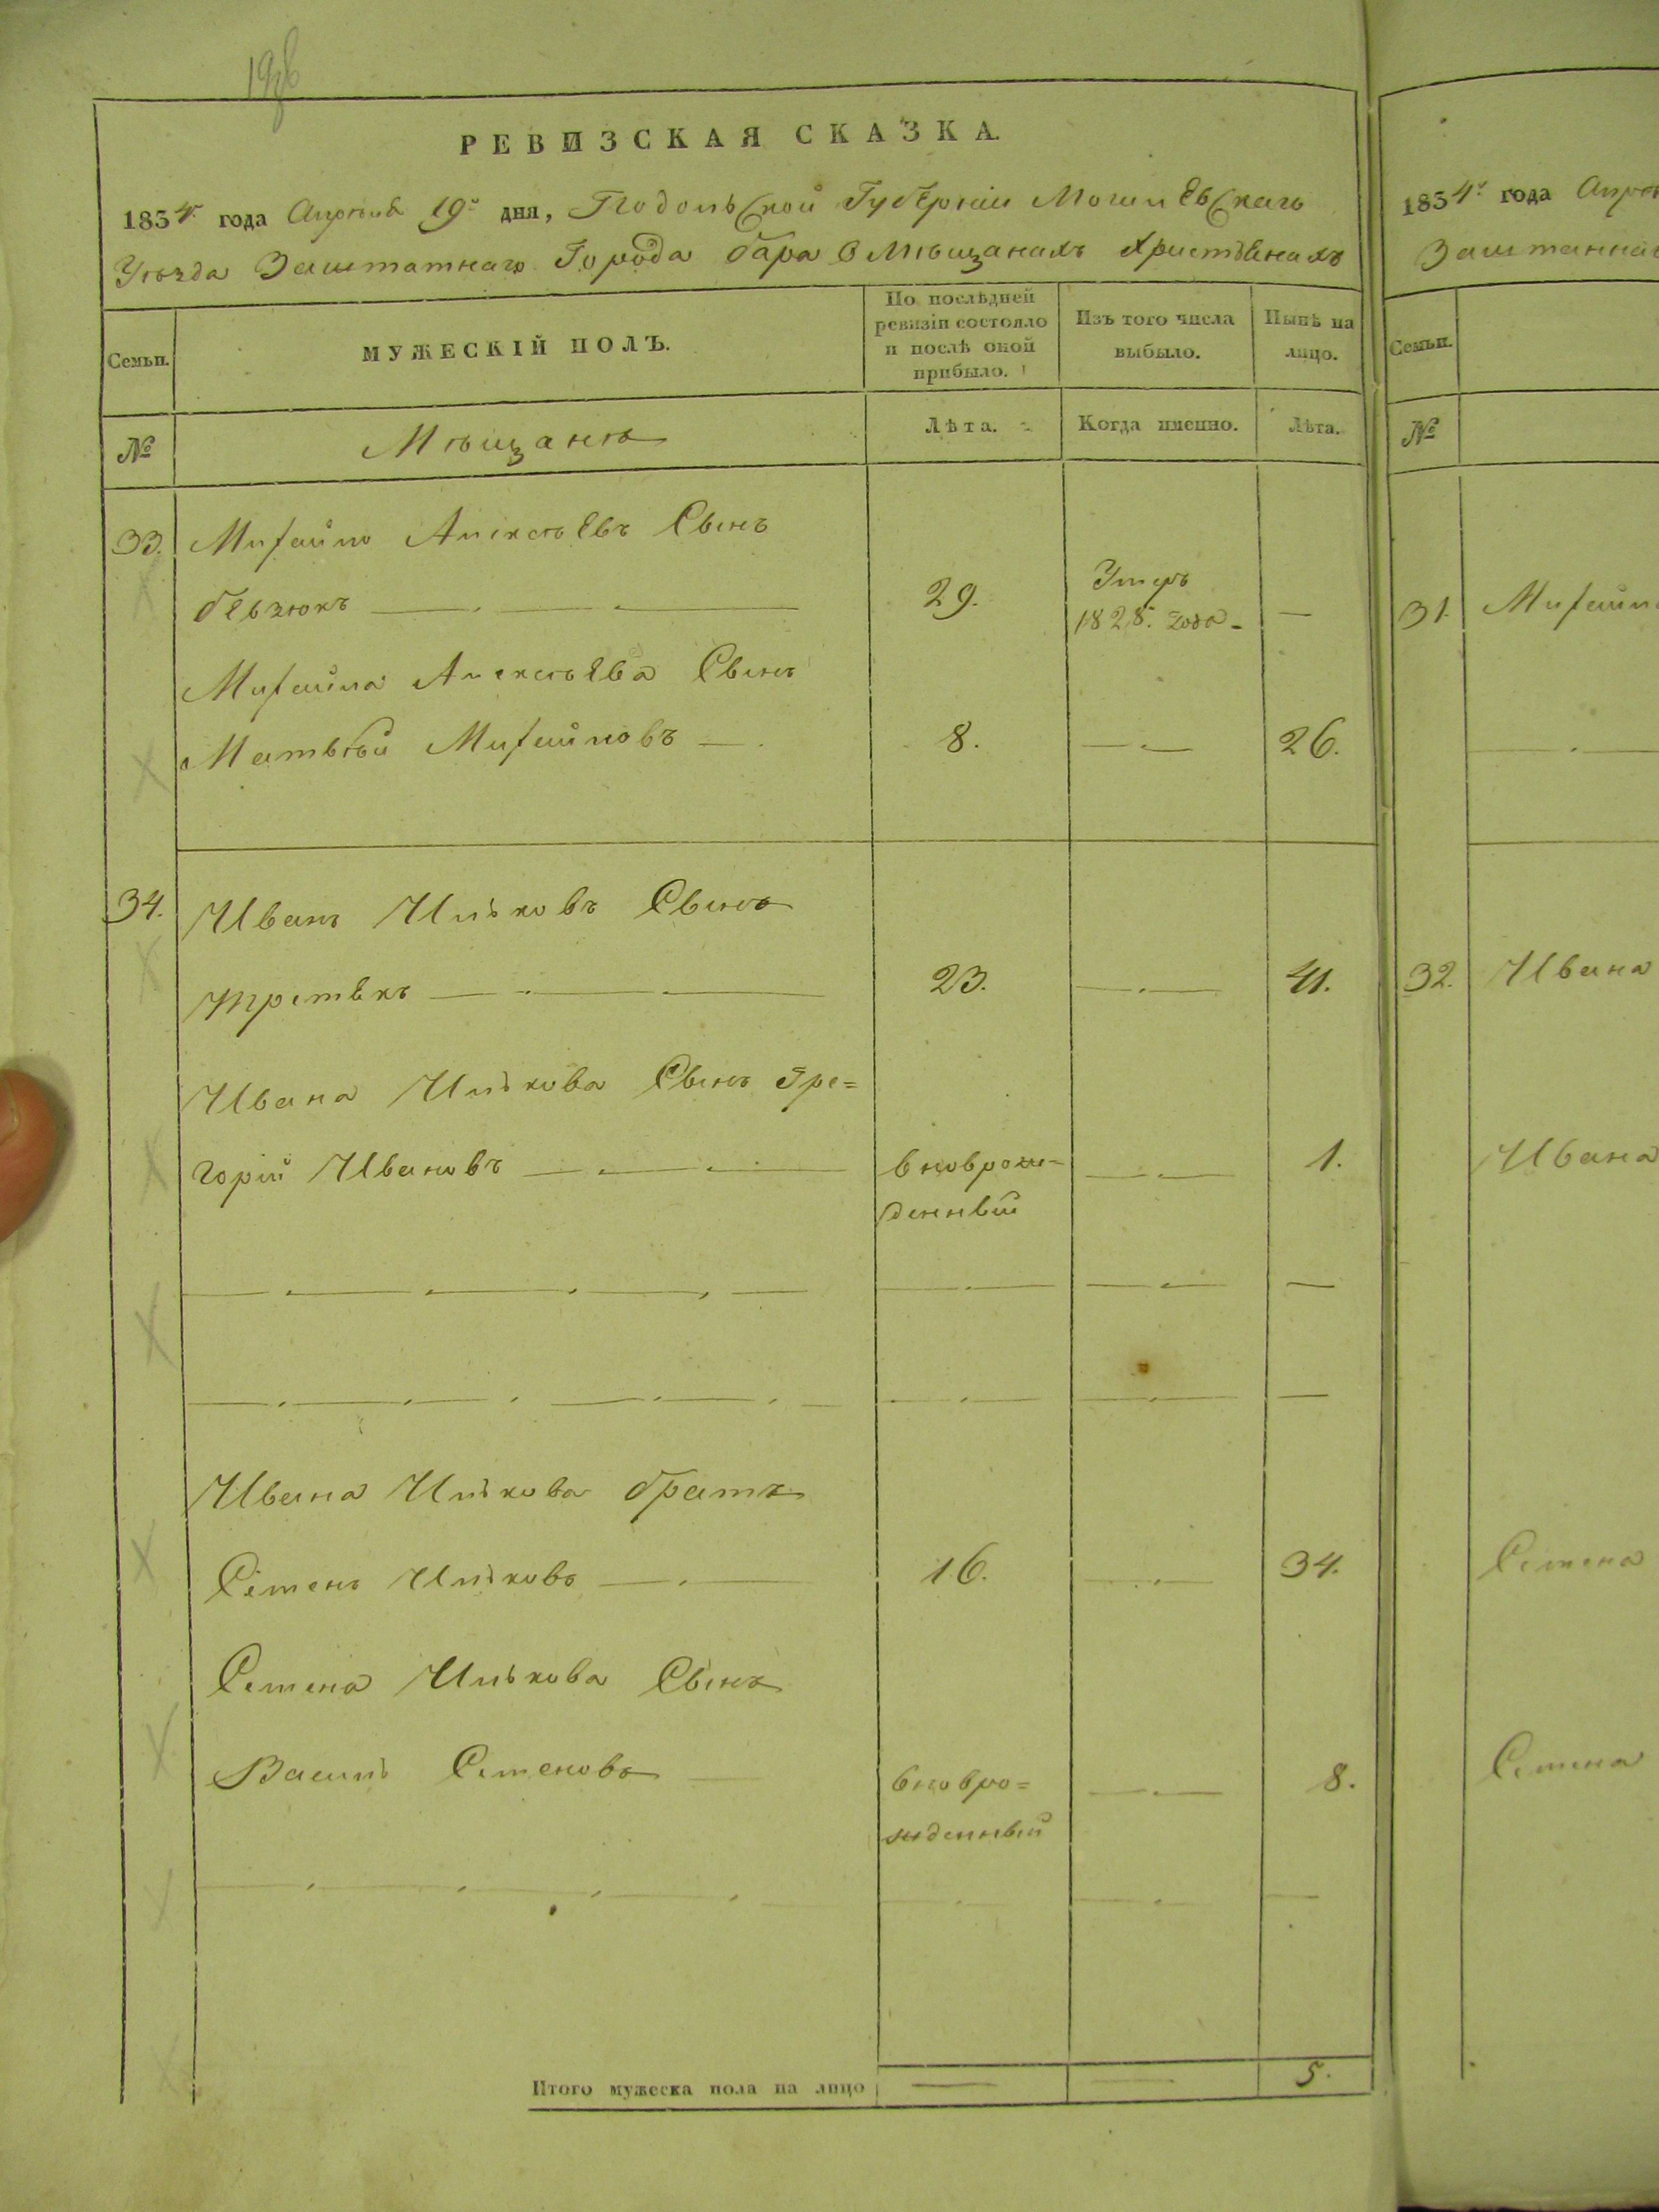 198
РЕВИЗСКАЯ СКАЗКА.
1834. года Апрѣля 19º дня, Подольской Губерніи Могилевскаго
Уѣзда Заштатнаго Города бара О Мѣщанахъ Христіянахъ
Семьи.
МУЖЕСКІЙ ПОЛЪ.
По послѣдней ревизіи состояло и послѣ оной прибыло.
Изъ того числа выбыло.
Нынѣ на лицо.
№
Мѣщанѣ
Лѣта.
Когда именно.
Лѣта.
33. Михайло Алексѣевъ Сынъ
бевзюкъ 29. Умеръ 1828. года —
Михайла Алексѣева Сынъ
Матвѣй Михайловъ — 8. — 26.
34. Иванъ Ильковъ Сынъ
третякъ 23. — 41.
Ивана Илькова Сынъ Гре=
горій Ивановъ вновьрож=
денный — 1.
Ивана Илькова братъ
Семенъ Ильковъ — 16. — 34.
Семена Илькова Сынъ
Василь Семеновъ — вновьро=
жденный — 8.
Итого мужеска пола на лицо — — 5.
1834. года
Семьи.
№
31.
32. Ивана
Ивана
Семена
Семена